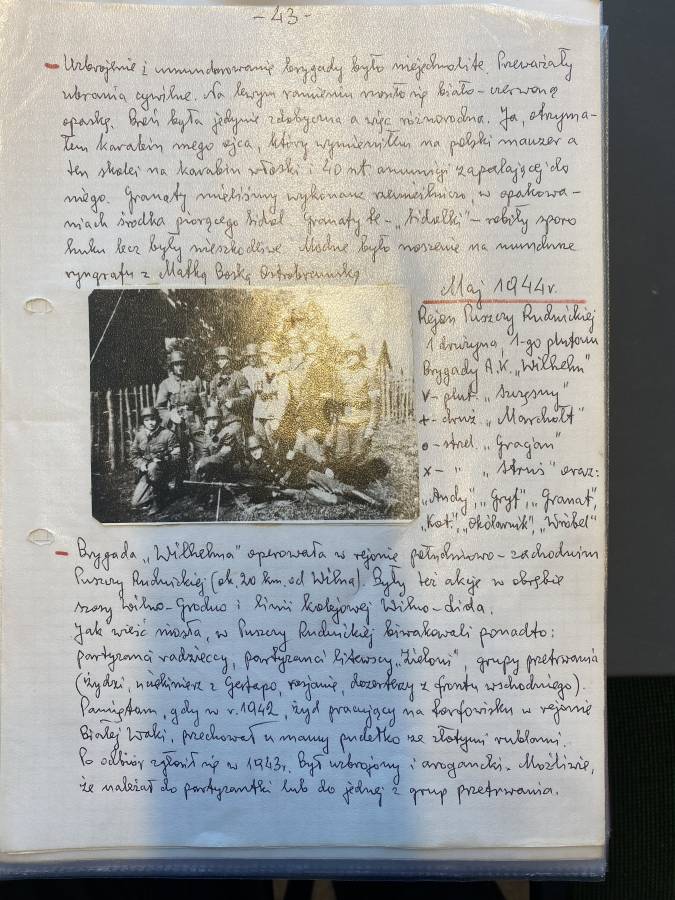 - 43 -
- Uzbrojenie i umundurowanie brygady było niejednolite. Przeważały
ubrania cywilne. Na lewym ramieniu nosiło się biało-czerwoną
opaskę. Broń była jedynie zdobyczna a więc różnorodna. Ja, otrzyma-
łem karabin mego ojca, który wymieniłem na polski mauzer a
ten z kolei na karabin włoski i 40 szt amunicji zapalającej do
niego. Granaty mieliśmy wykonane rzemieślniczo, w opakowa-
niach środka piorącego Sidol. Granaty te - "Sidolki" - robiły sporo
huku lecz były nieszkodliwe. Modne było noszenie na mundurze
ryngrafu z Matką Boską Ostrobramską
Maj 1944r.
Rejon Puszczy Rudnickiej
1 drużyna, 1-go plutonu
Brygady A.K. "Wilhelm"
v - plut. "Szczęsny"
+ - druż "Marchołt"
o - strzel. "Gragan"
x - " "Struś" oraz:
"Andy", "Gryf", "Granat",
"Kot", "Okólarnik", "Wróbel"
- Brygada "Wilhelma" operowała w rejonie południowo-zachodnim
Puszczy Rudnickiej (ok. 20 km. od Wilna). Były też akcje w obrębie
szosy Wilno-Grodno i linii kolejowej Wilno-Lida.
Jak wieść niosła, w Puszczy Rudnickiej biwakowali ponadto:
partyzanci radzieccy, partyzanci litewscy "Zieloni", grupy przetrwania
(Żydzi, uciekinierzy z Gestapo, rosjanie, dezerterzy z frontu wschodniego).
Pamiętam, gdy w r. 1942, żyd pracujący na torfowisku w rejonie
Białej Waki, przechował u mamy pudełko ze złotymi rublami.
Po odbiór zgłosił się w 1943r. Był uzbrojony i arogancki. Możliwe,
że należał do partyzantki lub do jednej z grup przetrwania.